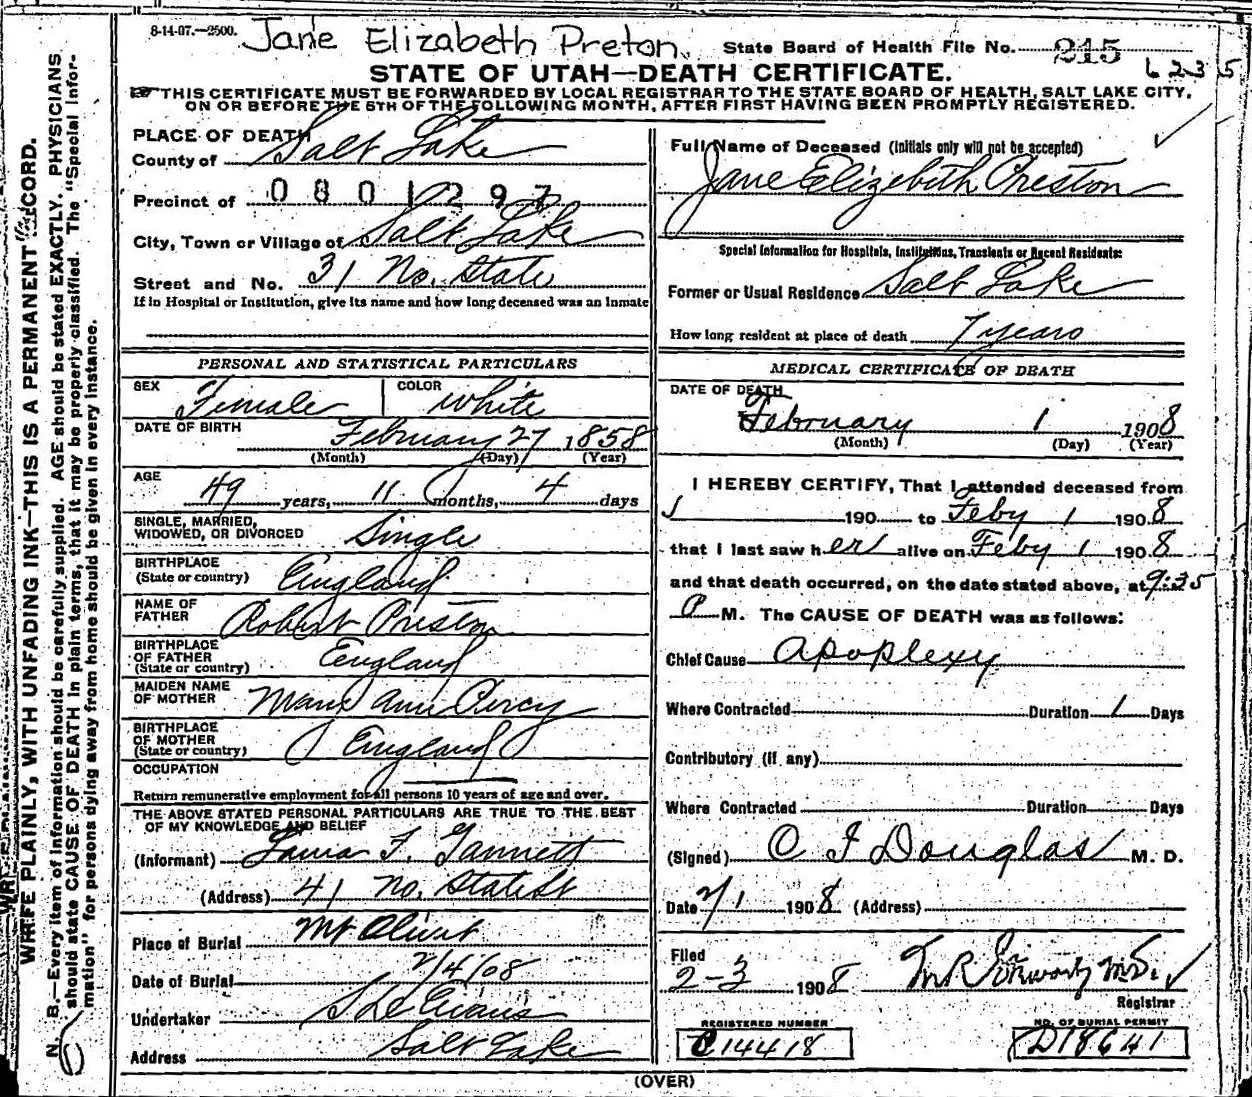 8-14-07.—2500. Jane Elizabeth Preton. State Board of Health File No. 215
6235
STATE OF UTAH—DEATH CERTIFICATE.
THIS CERTIFICATE MUST BE FORWARDED BY LOCAL REGISTRAR TO THE STATE BOARD OF HEALTH, SALT LAKE CITY,
ON OR BEFORE THE 5TH OF THE FOLLOWING MONTH, AFTER FIRST HAVING BEEN PROMPTLY REGISTERED.
PLACE OF DEATH
County of Salt Lake
Precinct of 0801297
City, Town or Village of Salt Lake
Street and No. 31 No. State
If in Hospital or Institution, give its name and how long deceased was an inmate
PERSONAL AND STATISTICAL PARTICULARS
SEX Female COLOR White
DATE OF BIRTH February 27 1858
(Month) (Day) (Year)
AGE 49 years, 11 months, 4 days
SINGLE, MARRIED,
WIDOWED, OR DIVORCED Single
BIRTHPLACE
(State or country) England
NAME OF
FATHER Robert Preston
BIRTHPLACE
OF FATHER
(State or country) England
MAIDEN NAME
OF MOTHER Mary Ann Percy
BIRTHPLACE
OF MOTHER
(State or country) England
OCCUPATION
Return remunerative employment for all persons 10 years of age and over.
THE ABOVE STATED PERSONAL PARTICULARS ARE TRUE TO THE BEST
OF MY KNOWLEDGE AND BELIEF
(Informant) Laura F. Gannett
(Address) 41 No. State St
Place of Burial Mt Olivet
Date of Burial 2/4/08
Undertaker S D Evans
Address Salt Lake
Full Name of Deceased (Initials only will not be accepted)
Jane Elizebeth Preston
Special Information for Hospitals, Institutions, Transients or Recent Residents:
Former or Usual Residence Salt Lake
How long resident at place of death 7 years
MEDICAL CERTIFICATE OF DEATH
DATE OF DEATH
February 1 1908
(Month) (Day) (Year)
I HEREBY CERTIFY, That I attended deceased from
190 to Feby 1 1908
that I last saw her alive on Feby 1 1908
and that death occurred, on the date stated above, at 9:35
P M. The CAUSE OF DEATH was as follows:
Chief Cause Apoplexy
Where Contracted Duration 1 Days
Contributory (if any)
Where Contracted Duration Days
(Signed) C F Douglas M. D.
Date 2/1 1908 (Address)
Filed
2-3 1908 M.D.
Registrar
REGISTERED NUMBER
C14418
NO. OF BURIAL PERMIT
D18641
(OVER)
WRITE PLAINLY, WITH UNFADING INK—THIS IS A PERMANENT RECORD.
N. B.—Every item of information should be carefully supplied. AGE should be stated EXACTLY. PHYSICIANS
should state CAUSE OF DEATH in plain terms, that it may be properly classified. The "Special Infor-
mation" for persons dying away from home should be given in every instance.